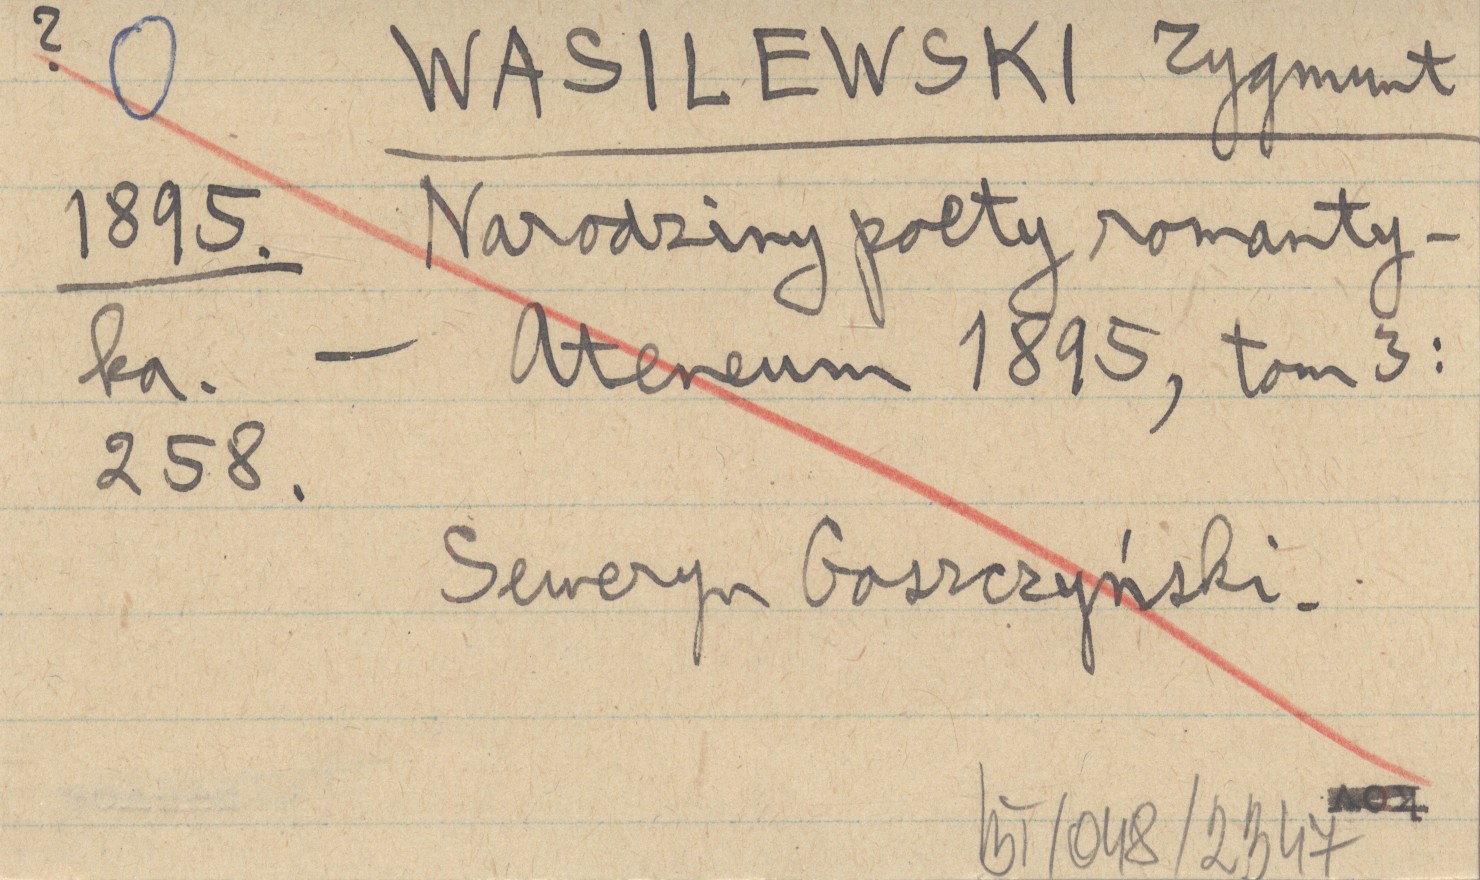 ?
WASILEWSKI Zygmunt
1895. Narodziny poety romanty-
ka. — Ateneum 1895, tom 3:
258.
Seweryn Goszczyński.
/048/2347